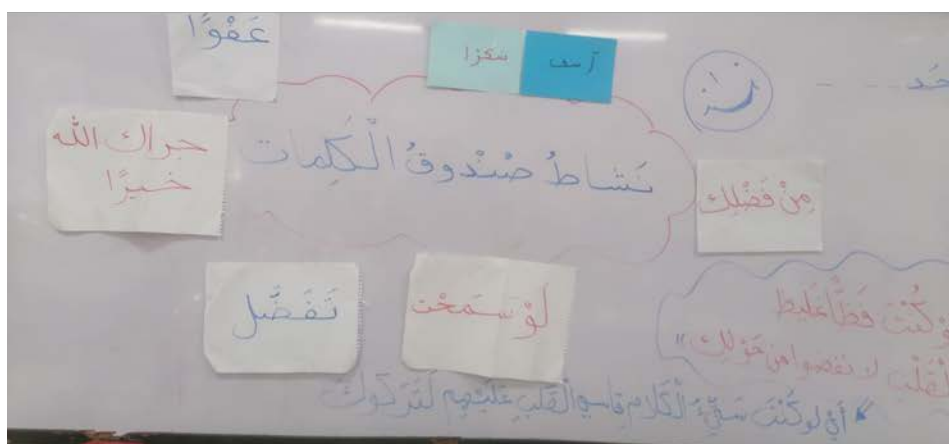 عَفْوًا
شكرا
آسف
جزاك الله
خيرًا
نَشاطُ صُنْدوقُ الْكَلِمات
مِنْ فَضْلِك
تَفَضَّل
لَوْ سَمَحْت
كُنْتَ فَظًّا غَلِيظَ
الْقَلْبِ لانفضوا من حَوْلِك"
أي لو كُنْتَ سَيِّءُ الْكَلامِ قاسِي الْقَلْبِ عَلَيْهِم لَتَرَكوكَ